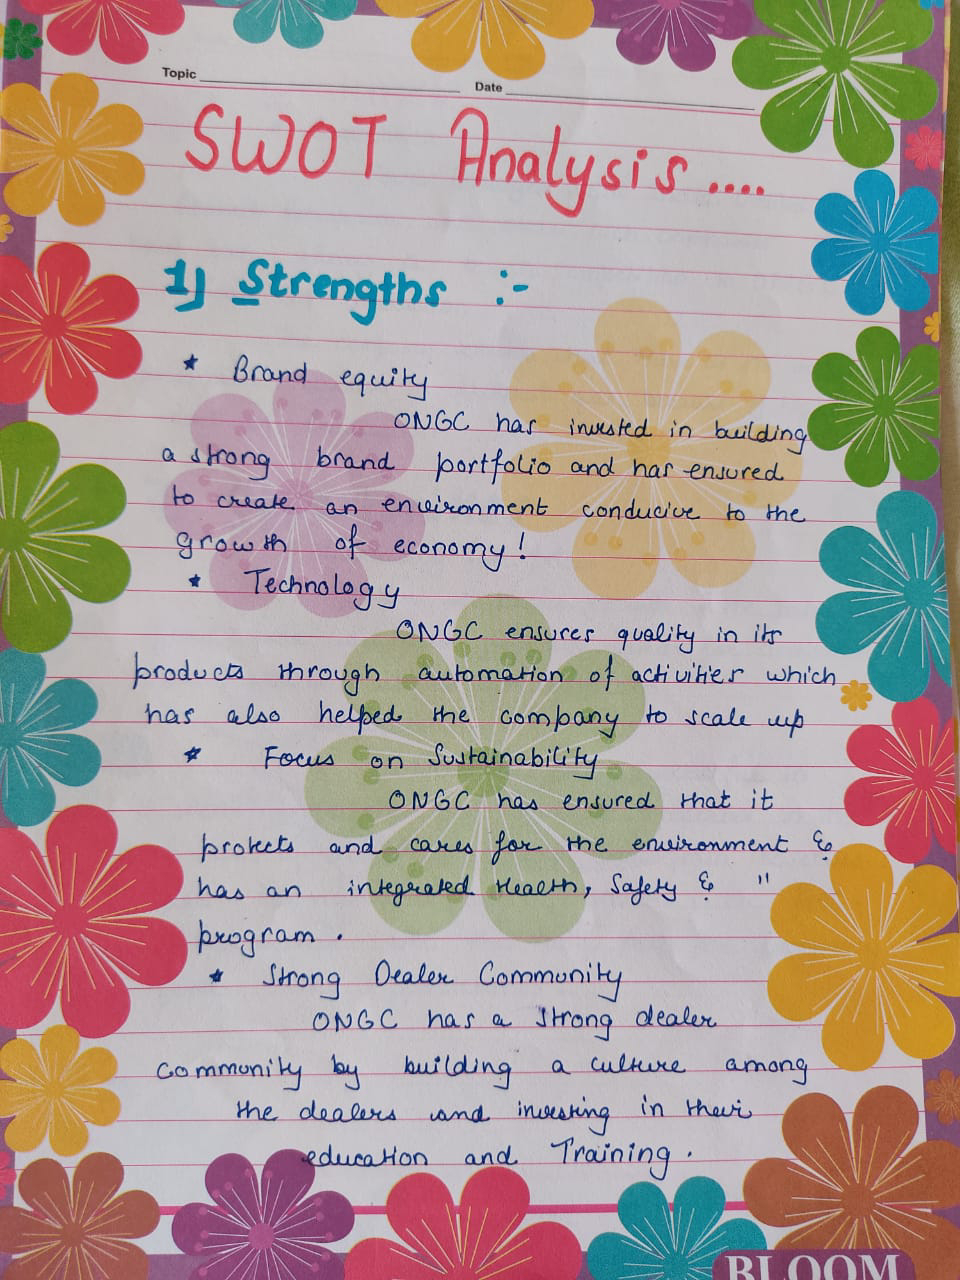 Topic
Date
SWOT Analysis ....
1) Strengths :-
* Brand equity
ONGC has invested in building
a strong brand portfolio and has ensured
to create an environment conducive to the
growth of economy!
* Technology
ONGC ensures quality in its
products through automation of activities which
has also helped the company to scale up
* Focus on Sustainability
ONGC has ensured that it
protects and cares for the environment &
has an integrated Health, Safety & "
program.
* Strong Dealer Community
ONGC has a strong dealer
community by building a culture among
the dealers and investing in their
education and Training.
BLOOM